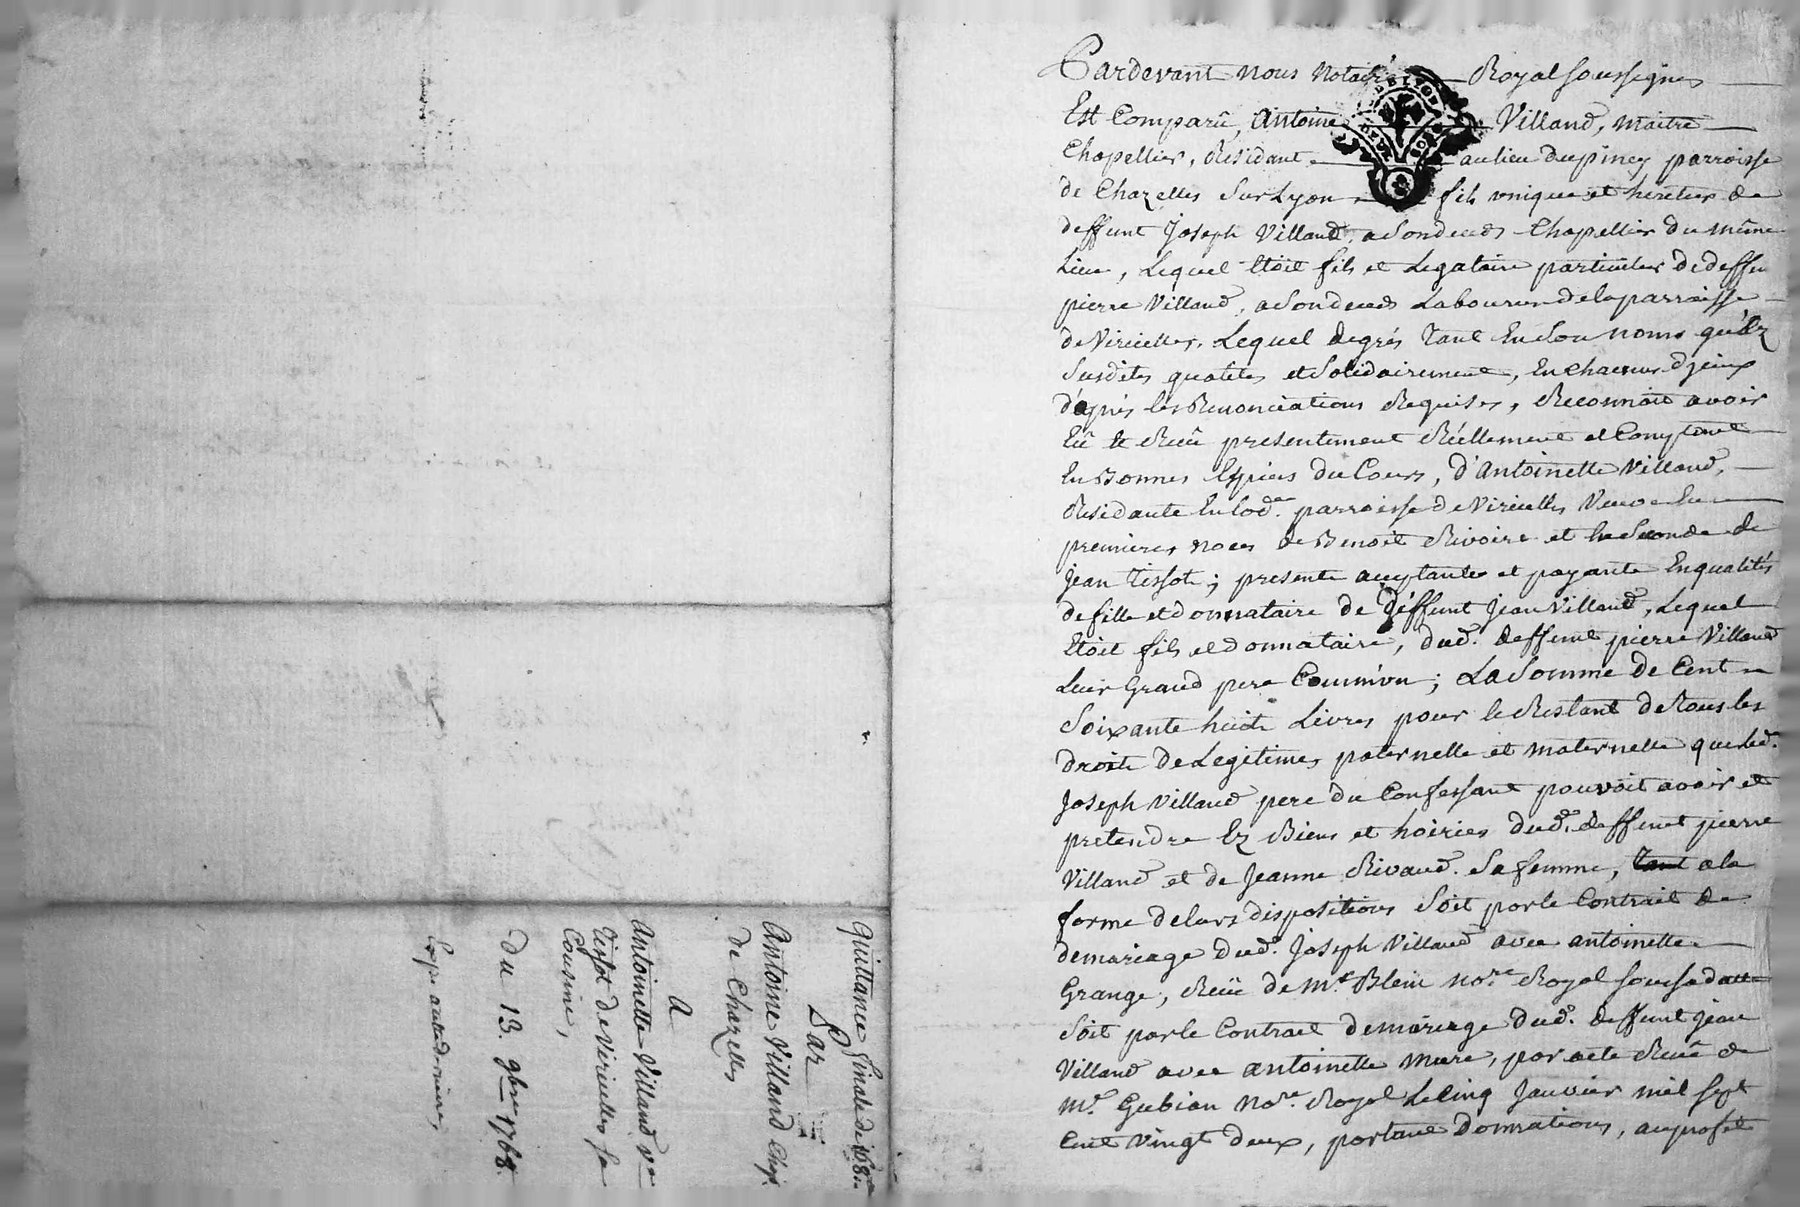 Pardevant nous notaire Royal soussignes
Est Comparû, Antoine Villand, maitre
Chapellier, Residant au lieu du piney parroisse
de Chazelles sur Lyon, fils vnique et heretier de
deffunt Joseph Villand, a son deceds Chapellier du même
Lieu, Lequel Etoit fils et Legataire particulier de deffun
pierre Villand, a son deceds Laboureur de la parroisse
de Viricelles, Lequel degrés tant En son nom qu'Ez
susdites qualites et solidairement, En chacune d'jeux
d'après les Renonciations Requises, Reconnoit avoir
Eû et Reçû presentement Réellement et Comptant
En Bonnes Espices du Cours, d'Antoinette Villand,
Residante En lad. parroisse de Viricelles Veuve En
premieres noces de Benoit Rivoire et En seconde de
jean Tissot; presente acceptante et payante En qualités
de fille et donnataire de Déffunt jean Villand, Lequel
Etoit fils et donnataire, dud. deffunt pierre Villand
Leur Grand pere Commun; La Somme de Cent
Soixante huit Livres pour le Restant de tous les
droits de Legitimes paternelle et maternelle que led.
Joseph Villand pere du Confessant pouvoit avoir et
pretendre Ez Biens et hoiries dud. deffunt pierre
Villand et de Jeanne Rivaud sa femme, a la
forme de leurs dispositions soit par le Contrait de
de mariage dud. Joseph Villand avec antoinette
Grange, Reçû de Me. Blein nore. Royal
soit par le Contrait de mariage dud. deffunt jean
Villand avec antoinette mure, par acte Reçû de
Me. Gubian nore. Royal Le cinq Janvier mil sept
Cent vingt deux, portant donnations, au profit
Quittance finale de 168.
Par
Antoine Villand Chap.
de Chazelles
A
Antoinette Villand ve.
Tissot de Viricelles sa
Cousine,
du 13. gbre 1768.